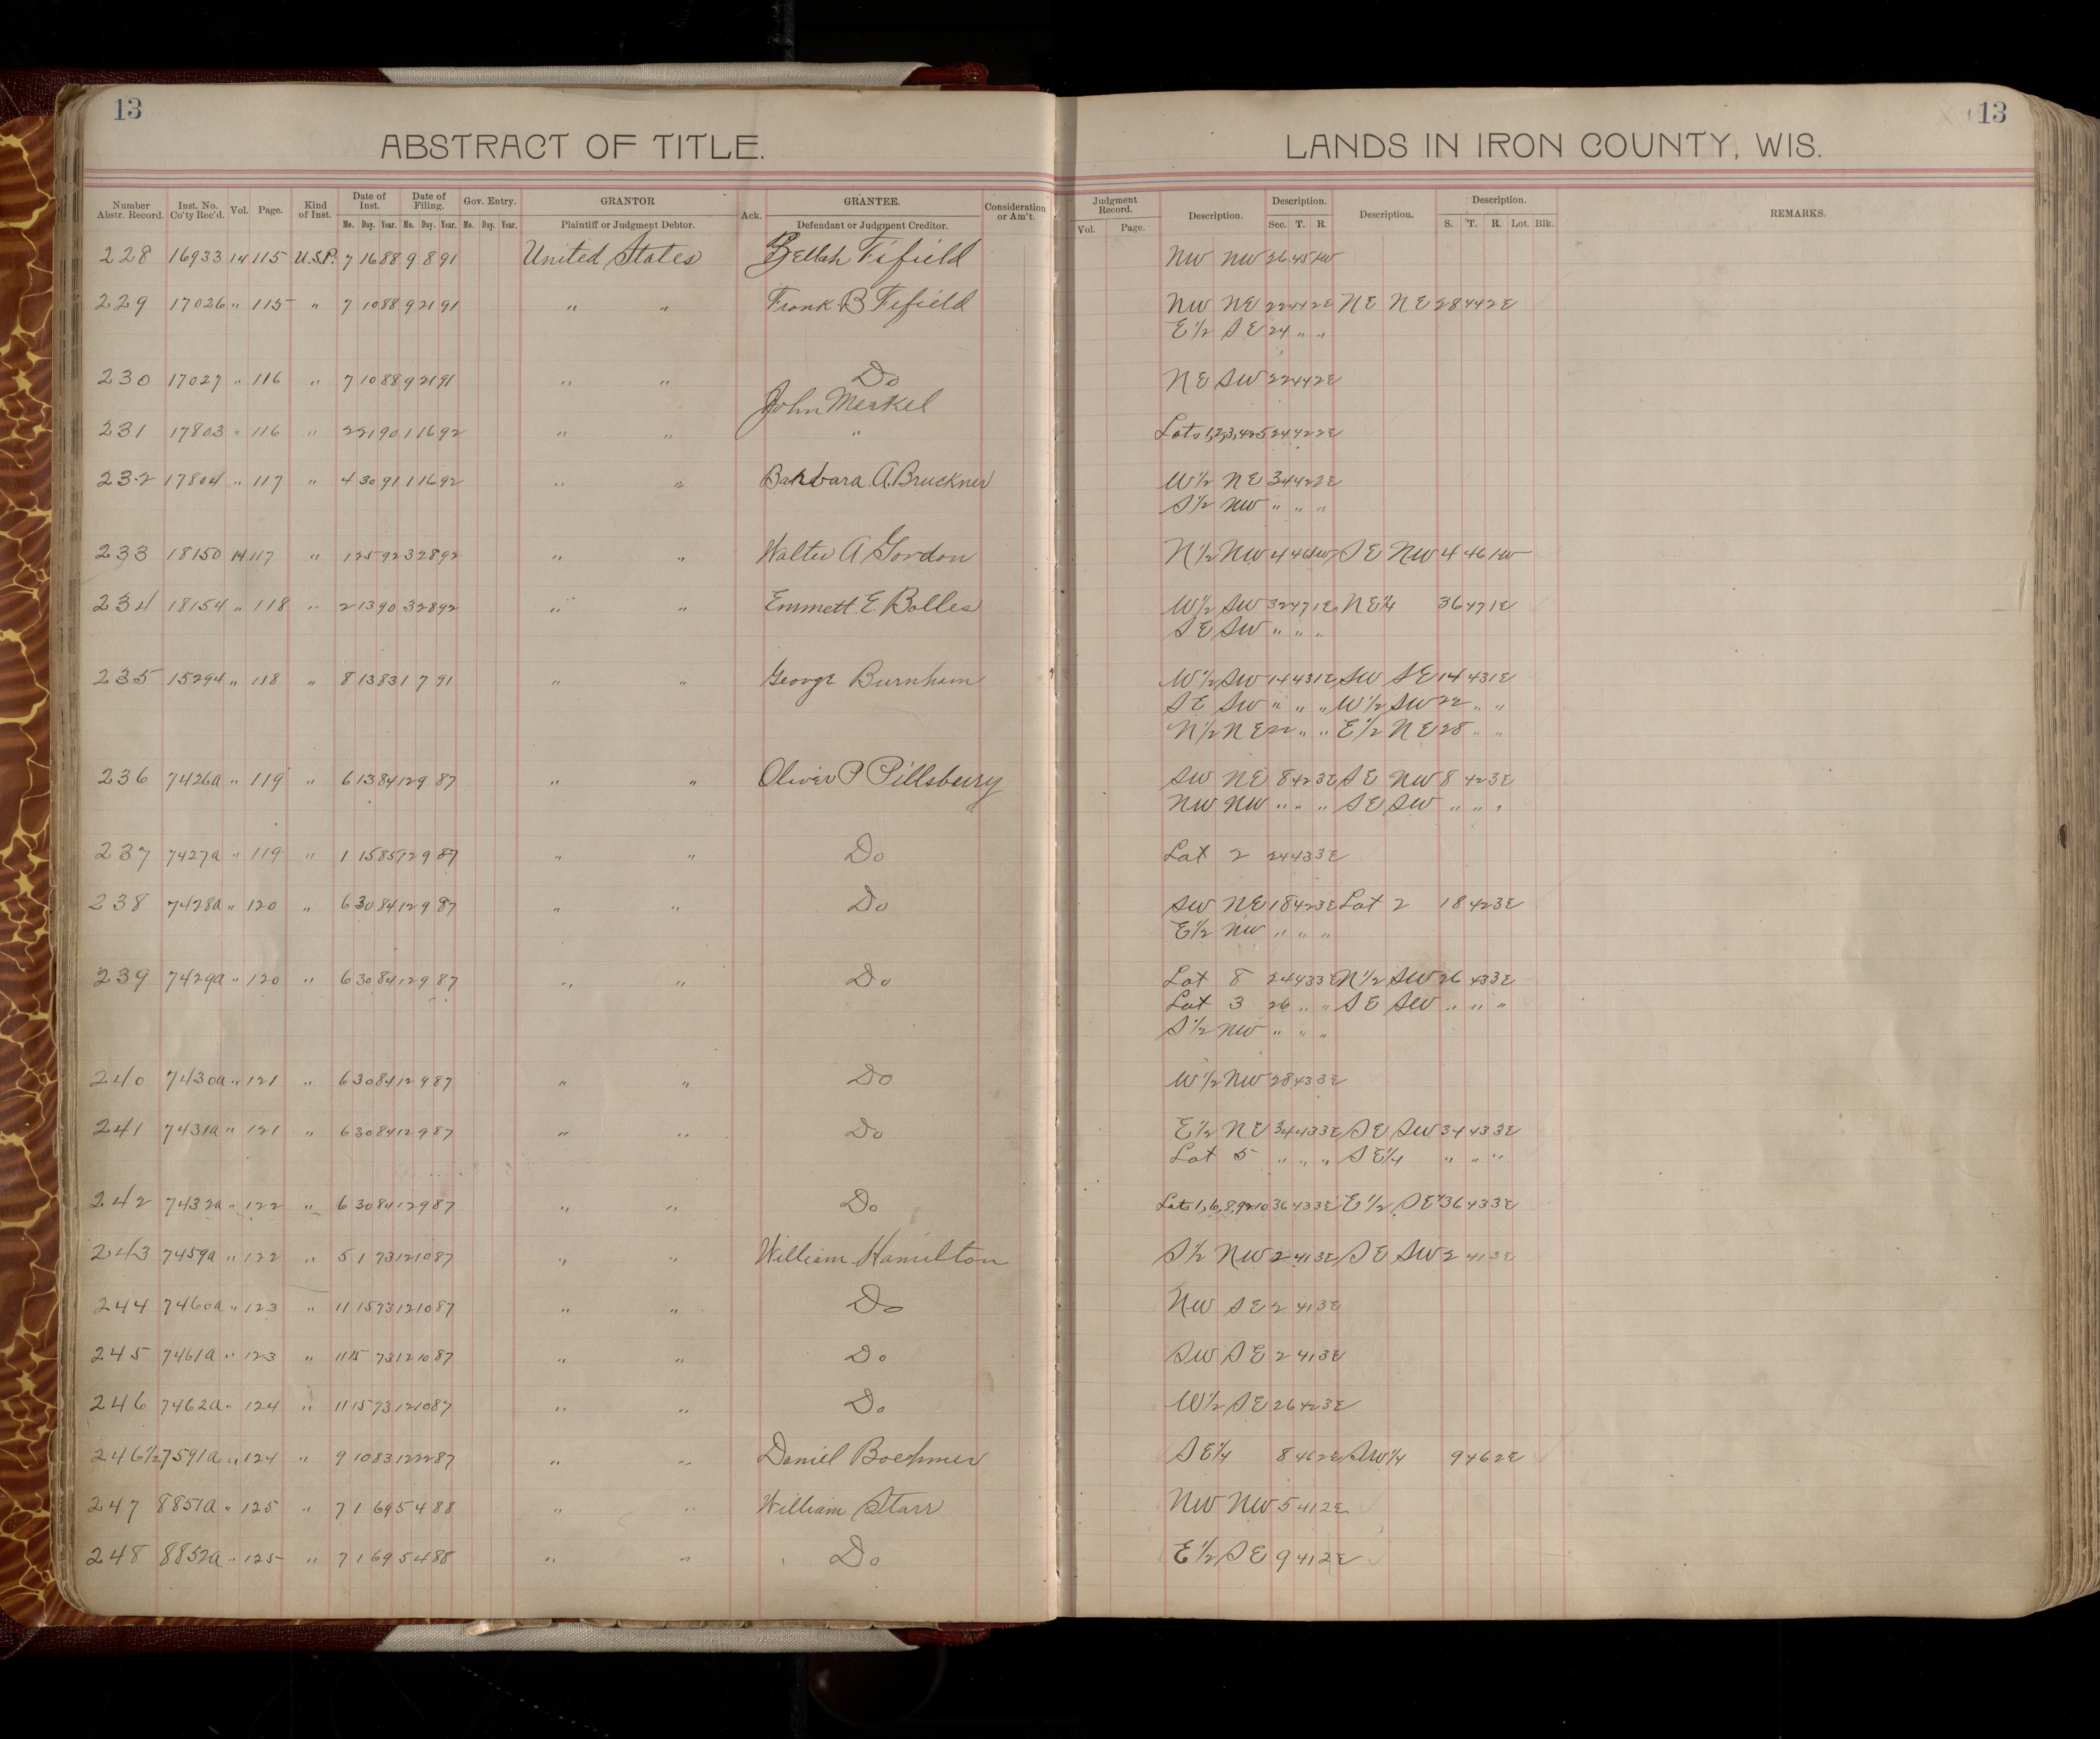 13
ABSTRACT OF TITLE.
Number Abstr. Record. Inst. No. Co'ty Rec'd. Vol. Page. Kind of Inst. Date of Inst. Date of Filing. Gov. Entry. GRANTOR Ack. GRANTEE. Consideration or Am't.
Mo. Day. Year. Mo. Day. Year. Mo. Day. Year. Plaintiff or Judgment Debtor. Defendant or Judgment Creditor.
228 16933 14 115 U.S.P. 7 16 88 9 8 91 United States Fifield
229 17026 " 115 " 7 10 88 9 21 91 " " Frank B Fifield
230 17027 " 116 " 7 10 88 9 21 91 " " Do
John Merkel
231 17803 " 116 " 2 21 90 1 16 92 " " "
232 17804 " 117 " 4 30 91 1 16 92 " " Barbara A. Bruckner
233 18150 14 117 " 1 25 92 3 28 92 " " Walter A Gordon
234 18154 " 118 " 2 13 90 3 28 92 " " Emmett E Bolles
235 15294 " 118 " 8 13 83 1 7 91 " " George Burnham
236 7426a " 119 " 6 13 84 12 9 87 " " Oliver P Pillsbury
237 7427a " 119 " 1 15 85 12 9 87 " " Do
238 7428a " 120 " 6 30 84 12 9 87 " " Do
239 7429a " 120 " 6 30 84 12 9 87 " " Do
240 7430a " 121 " 6 30 84 12 9 87 " " Do
241 7431a " 121 " 6 30 84 12 9 87 " " Do
242 7432a " 122 " 6 30 84 12 9 87 " " Do
243 7459a " 122 " 5 1 73 12 10 87 " " William Hamilton
244 7460a " 123 " 11 15 73 12 10 87 " " Do
245 7461a " 123 " 11 15 73 12 10 87 " " Do
246 7462a " 124 " 11 15 73 12 10 87 " " Do
246½ 7591a " 124 " 9 10 83 12 22 87 " " Daniel Boehmer
247 8851a " 125 " 7 1 69 5 4 88 " " William Starr
248 8852a " 125 " 7 1 69 5 4 88 " " Do
13
LANDS IN IRON COUNTY, WIS.
Judgment Record. Description. Description. Description. Description. REMARKS.
Vol. Page. Sec. T. R. S. T. R. Lot. Blk.
NW NW 26 45 1W
NW NE 22 44 2E NE NE 28 44 2E
E½ SE 24 " "
NE SW 22 44 2E
Lots 1,2,3,4&5 24 42 2E
W½ NE 34 42 2E
S½ NW " " "
N½ NW 4 46 1W SE NW 4 46 1W
W½ SW 32 47 1E NE¼ 36 47 1E
SE SW " " "
W½ SW 14 43 1E SW SE 14 43 1E
SE SW " " " W½ SW 22 " "
N½ NE 22 " " E½ NE 28 " "
SW NE 8 42 3E SE NW 8 42 3E
NW NW " " " SE SW " " "
Lot 2 24 43 3E
SW NE 18 42 3E Lot 2 18 42 3E
E½ NW " " "
Lot 8 24 43 3E N½ SW 26 43 3E
Lot 3 26 " " SE SW " " "
S½ NW " " "
W½ NW 28 43 3E
E½ NE 34 43 3E SE SW 34 43 3E
Lot 5 " " " SE¼ " " "
Lots 1,6,8,9&10 36 43 3E E½ SE 36 43 3E
S½ NW 2 41 3E SE SW 2 41 3E
NW SE 2 41 3E
SW SE 2 41 3E
W½ SE 26 42 3E
SE¼ 8 46 2E SW¼ 9 46 2E
NW NW 5 41 2E
E½ SE 9 41 2E